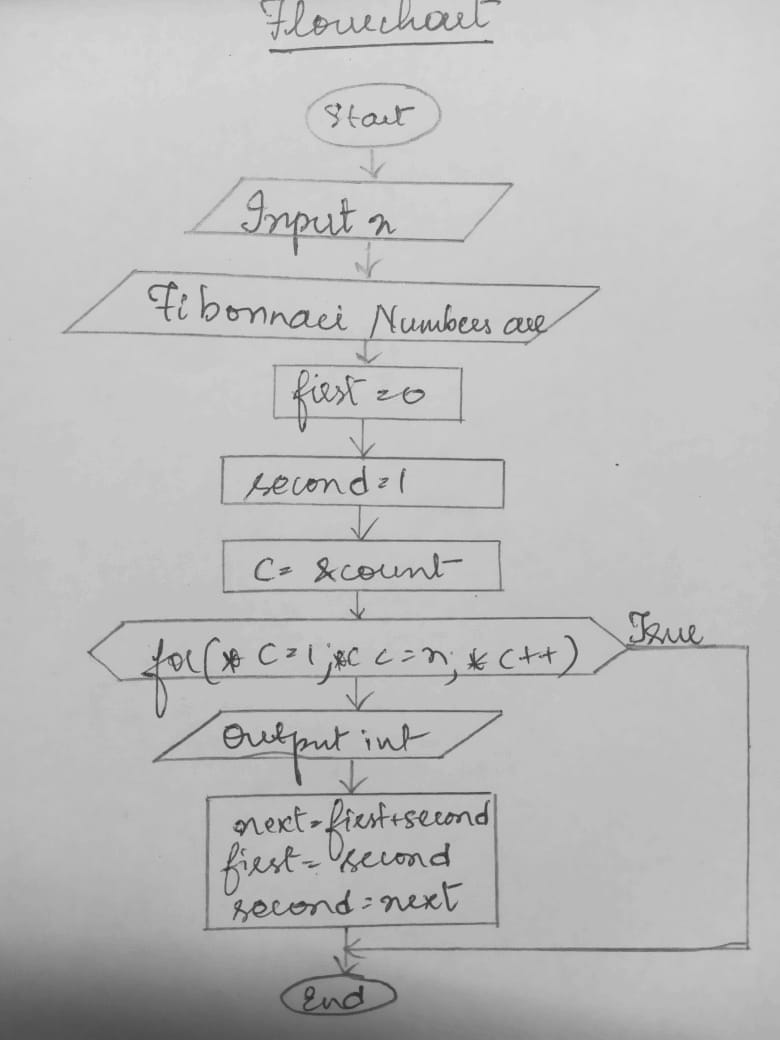 Flowchart
Start
Input n
Fibonnaci Numbers are
first = 0
second = 1
C = &count
for(* C=1; *C <= n; * C++)
True
Output int
next = first + second
first = second
second = next
End